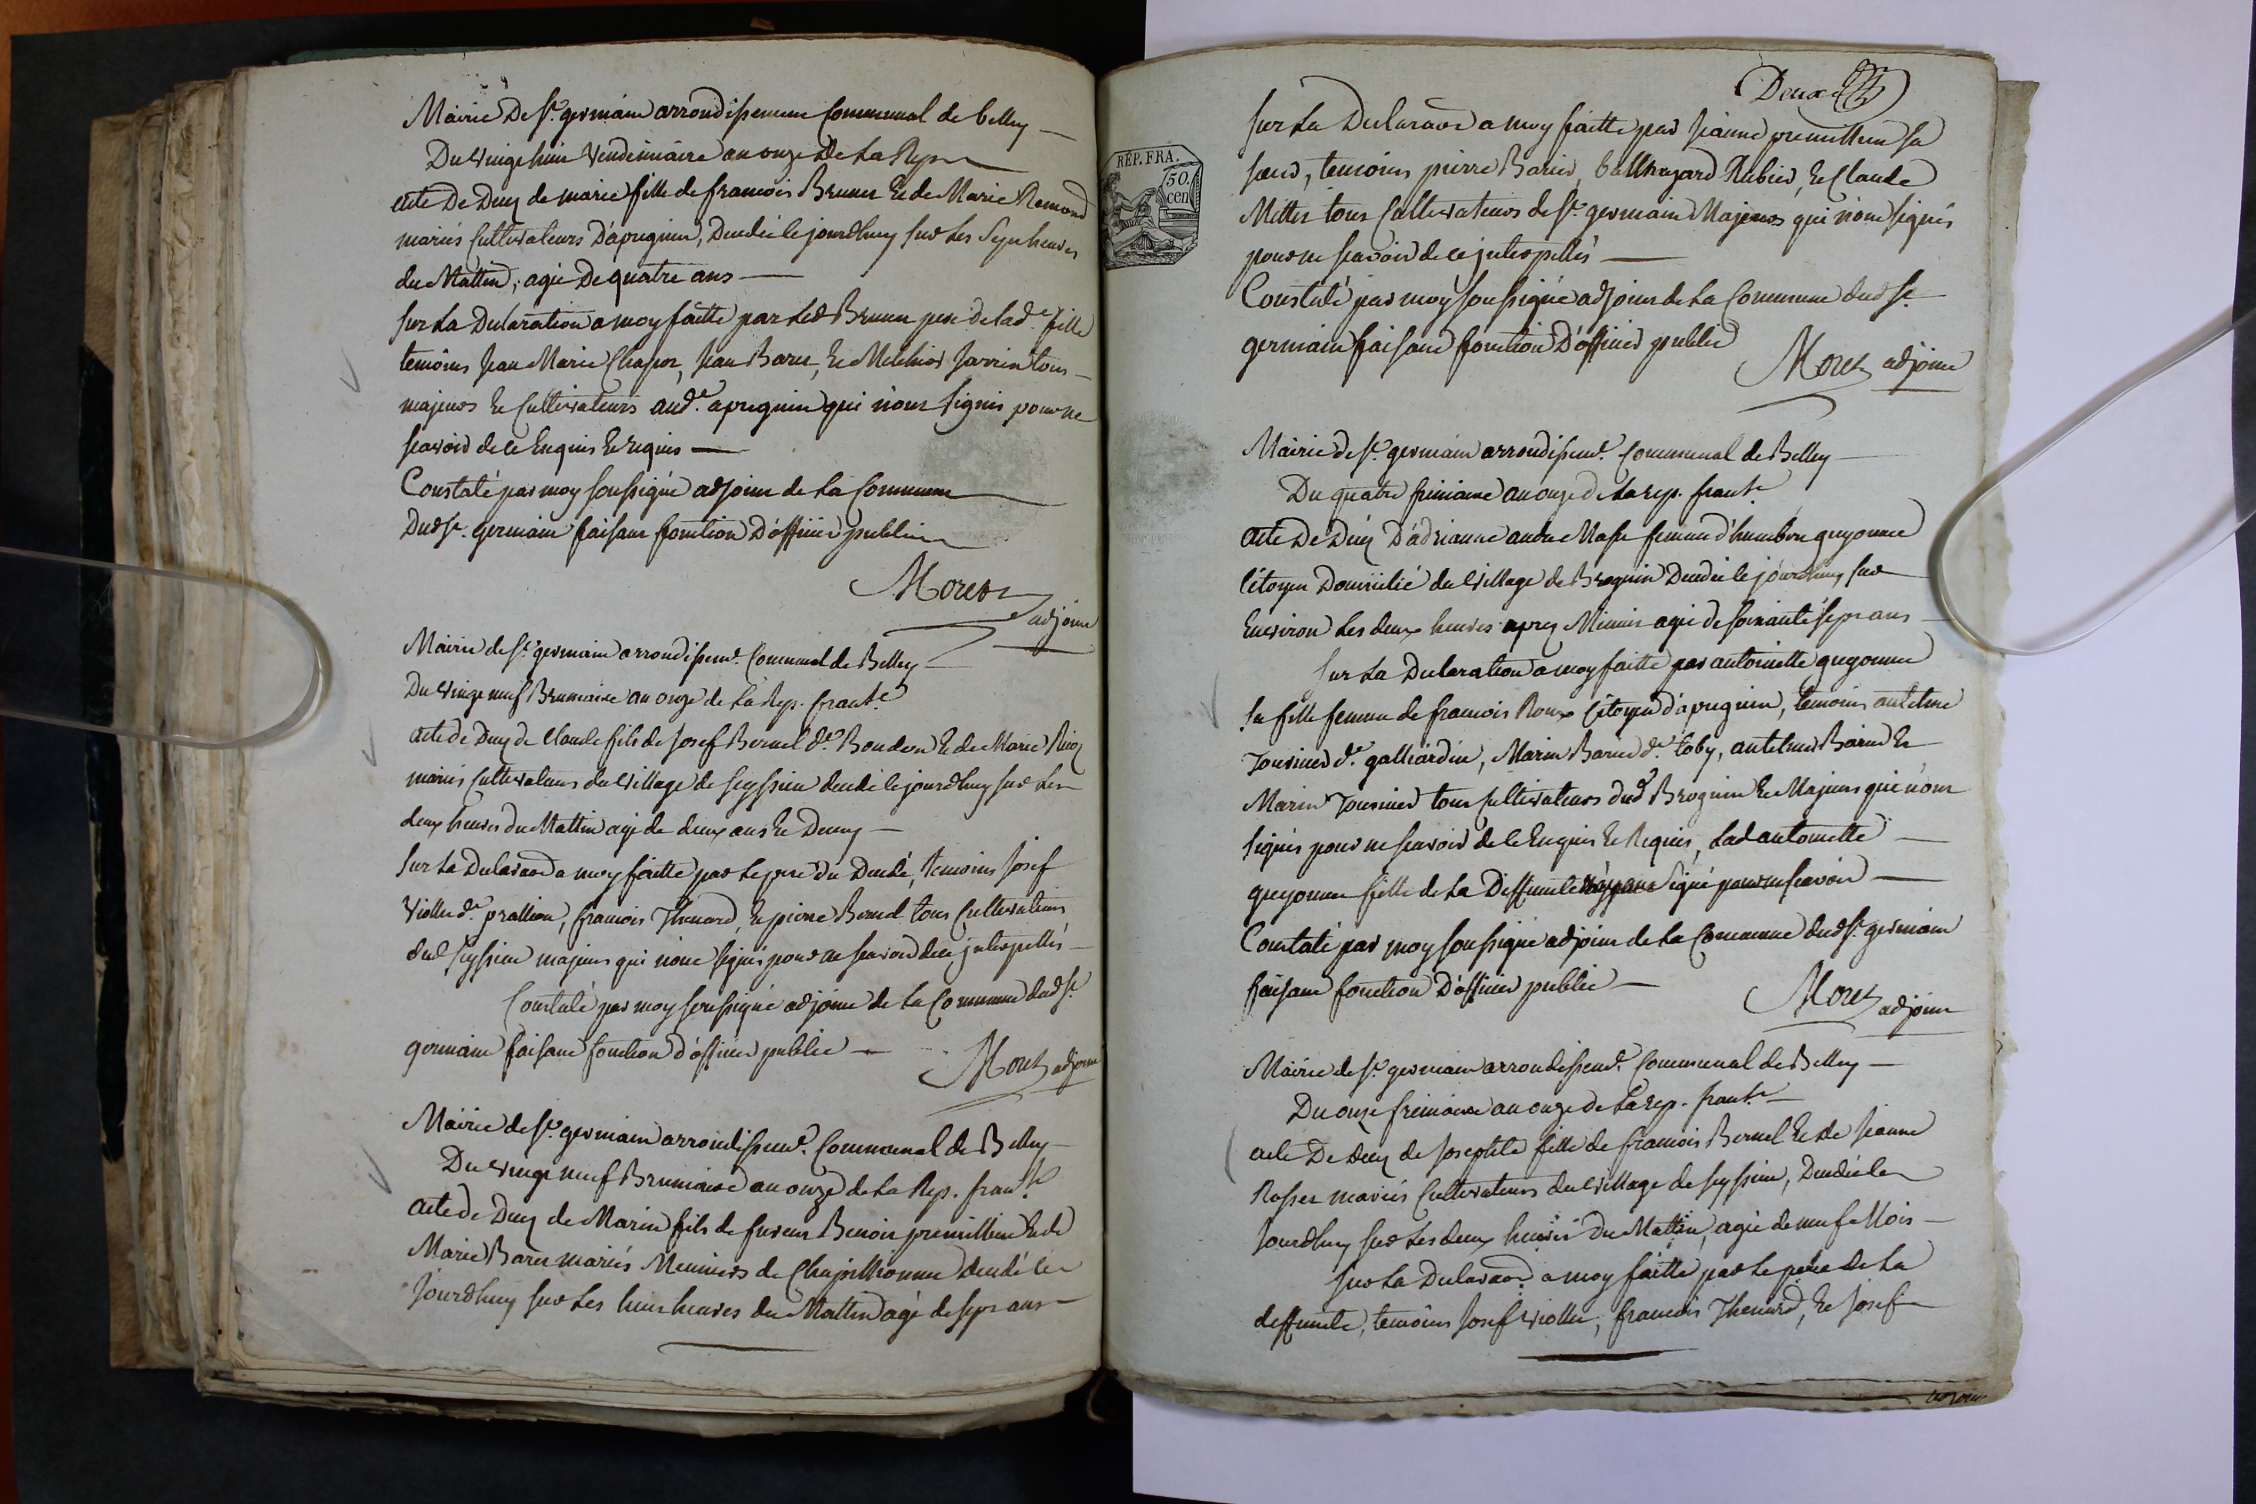 Mairie De St. germain arrondissement Communal de belley
Du vingt huit Vendemiaire an onze De La Rep
acte De Deces de marie fille de francois Brunet Et de Marie Remond
mariés Cultivateurs D'apregnin, Decedée le jourdhuy sur Les Sept heures
du Mattin, agée De quatre ans
sur La Declaration a moy faitte par Led Brunet pere de lade fille
temoins Jean Marie Chapot, Jean Baret, Et Melchior Jarrin tous
majeurs Et Cultivateurs aude apregnin qui n'ont signés pour ne
scavoir de ce Enquis Et requis
Constaté par moy soussigné adjoint de La Commune
Dudt St. germain faisant fonction D'officier public
Moret
adjoint
Mairie de St. germain arrondissemt. Communal de Belley
Du vingt neuf Brumaire an onze de La Rep. francse
acte de Deces de Claude fils de Josef Bernel de Boudon Et de Marie
mariés Cultivateurs du village de seyssieu decedé le jourdhuy sur Les
deux heures du Mattin agé de deux ans Et Demy
sur La Declaraon a moy faitte par Le pere du Decedé, temoins Josef
Viollet de prallion, francois Thenard, Et pierre Bernel tous Cultivateurs
dud seyssieu majeurs qui n'ont signés pour ne scavoir de ce interpellés
Constaté par moy soussigné adjoint de La Commune dudt St.
germain faisant fonction d'officier public
Moret adjoint
Mairie de St. germain arrondissemt. Communal de Belley
Du vingt neuf Brumaire an onze de La Rep. franse
acte de Deces de Marin fils de feu Benoit premillieu Et de
Marie Baret mariés Meuniers de decedé le
Jourdhuy sur Les huit heures du Mattin agé de sept ans
Deux
RÉP. FRA.
50.
cen
sur La Declaraon a moy faitte par Jeanne premillieu sa
soeur, temoins pierre Baret, balthazard Rubier, Et Claude
Millet tous Cultivateurs de St. germain Majeurs qui n'ont signés
pour ne scavoir de ce interpellés
Constaté par moy soussigné adjoint de La Commune dudt St.
germain faisant fonction D'officier public
Moret adjoint
Mairie de St. germain arrondissemt. Communal de Belley
Du quatre frimaire an onze de La rep. franse
acte De Deces D'adrianne femme d'humbert guyonnet
Citoyen Domicilié du village de Brognin Decedée le jourdhuy sur
Environ Les deux heures apres Minuit agée de soixante sept ans
sur La Declaration a moy faitte par antoinette guyonnet
sa fille femme de francois Roux Citoyen d'apregnin, temoins antelme
Tournier de galliardin, Marin Baret de toby, antelme Baret Et
Marin Tournier tous Cultivateurs dud Brognin Et Majeurs qui n'ont
signés pour ne scavoir de ce Enquis Et Requis, Lad antoinette
guyonnet fille de La Deffunte n'ayant signé pour ne scavoir
Constaté par moy soussigné adjoint de La Commune dudt St. germain
faisant fonction D'officier public
Moret adjoint
Mairie de St. germain arrondissemt. Communal de Belley
Du onze frimaire an onze de La rep. franse
acte De Deces de Josephte fille de francois Bernel Et de Jeanne
Rosset mariés Cultivateurs du village de seyssieu, Decedée le
Jourdhuy sur Les deux heures Du Mattin, agée de neuf Mois
sur La Declaraon a moy faitte par Le pere de La
deffunte, temoins Josef viollet, francois Thenard, Et Josef
adjoint